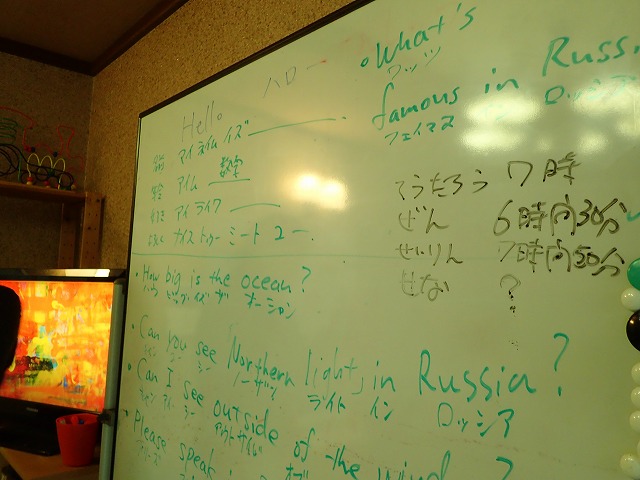 Hello ハロー
名前 マイネイム イズ
年齢 アイム 数字
好き アイライク
よろしく ナイス トゥー ミート ユー
・What's
ワッツ
famous in Russi
フェイマス ロッシア
こうたろう 7時
ぜん 6時間30分
せいりん 7時間50分
せな ?
・How big is the ocean?
ハウ ビッグ イズ ザ オーシャン
・Can you see Northern light, in Russia?
キャン ユー シー ノーザン ライト イン ロッシア
・Can I see outside of the wind ?
キャン アイ シー アウトサイド オブ
・Please speak
プリーズ